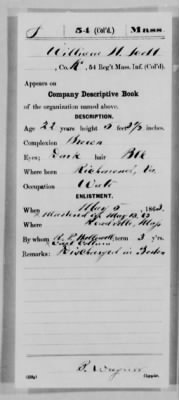 J 54 (Col'd.) Mass.
William H. Jett
, Co. K, 54 Reg't Mass. Inf. (Col'd).
Appears on
Company Descriptive Book
of the organization named above.
DESCRIPTION.
Age 22 years; height 5 feet 3½ inches.
Complexion Brown
Eyes; Dark hair Blk
Where born Richmond, Va.
Occupation
ENLISTMENT.
When May 5, 1863.
Mustered May 13, 63
Where Readville, Mass
By whom Hallowell; term 3 y'rs.
Remarks: Discharged in Boston
Wagner
Copyist.